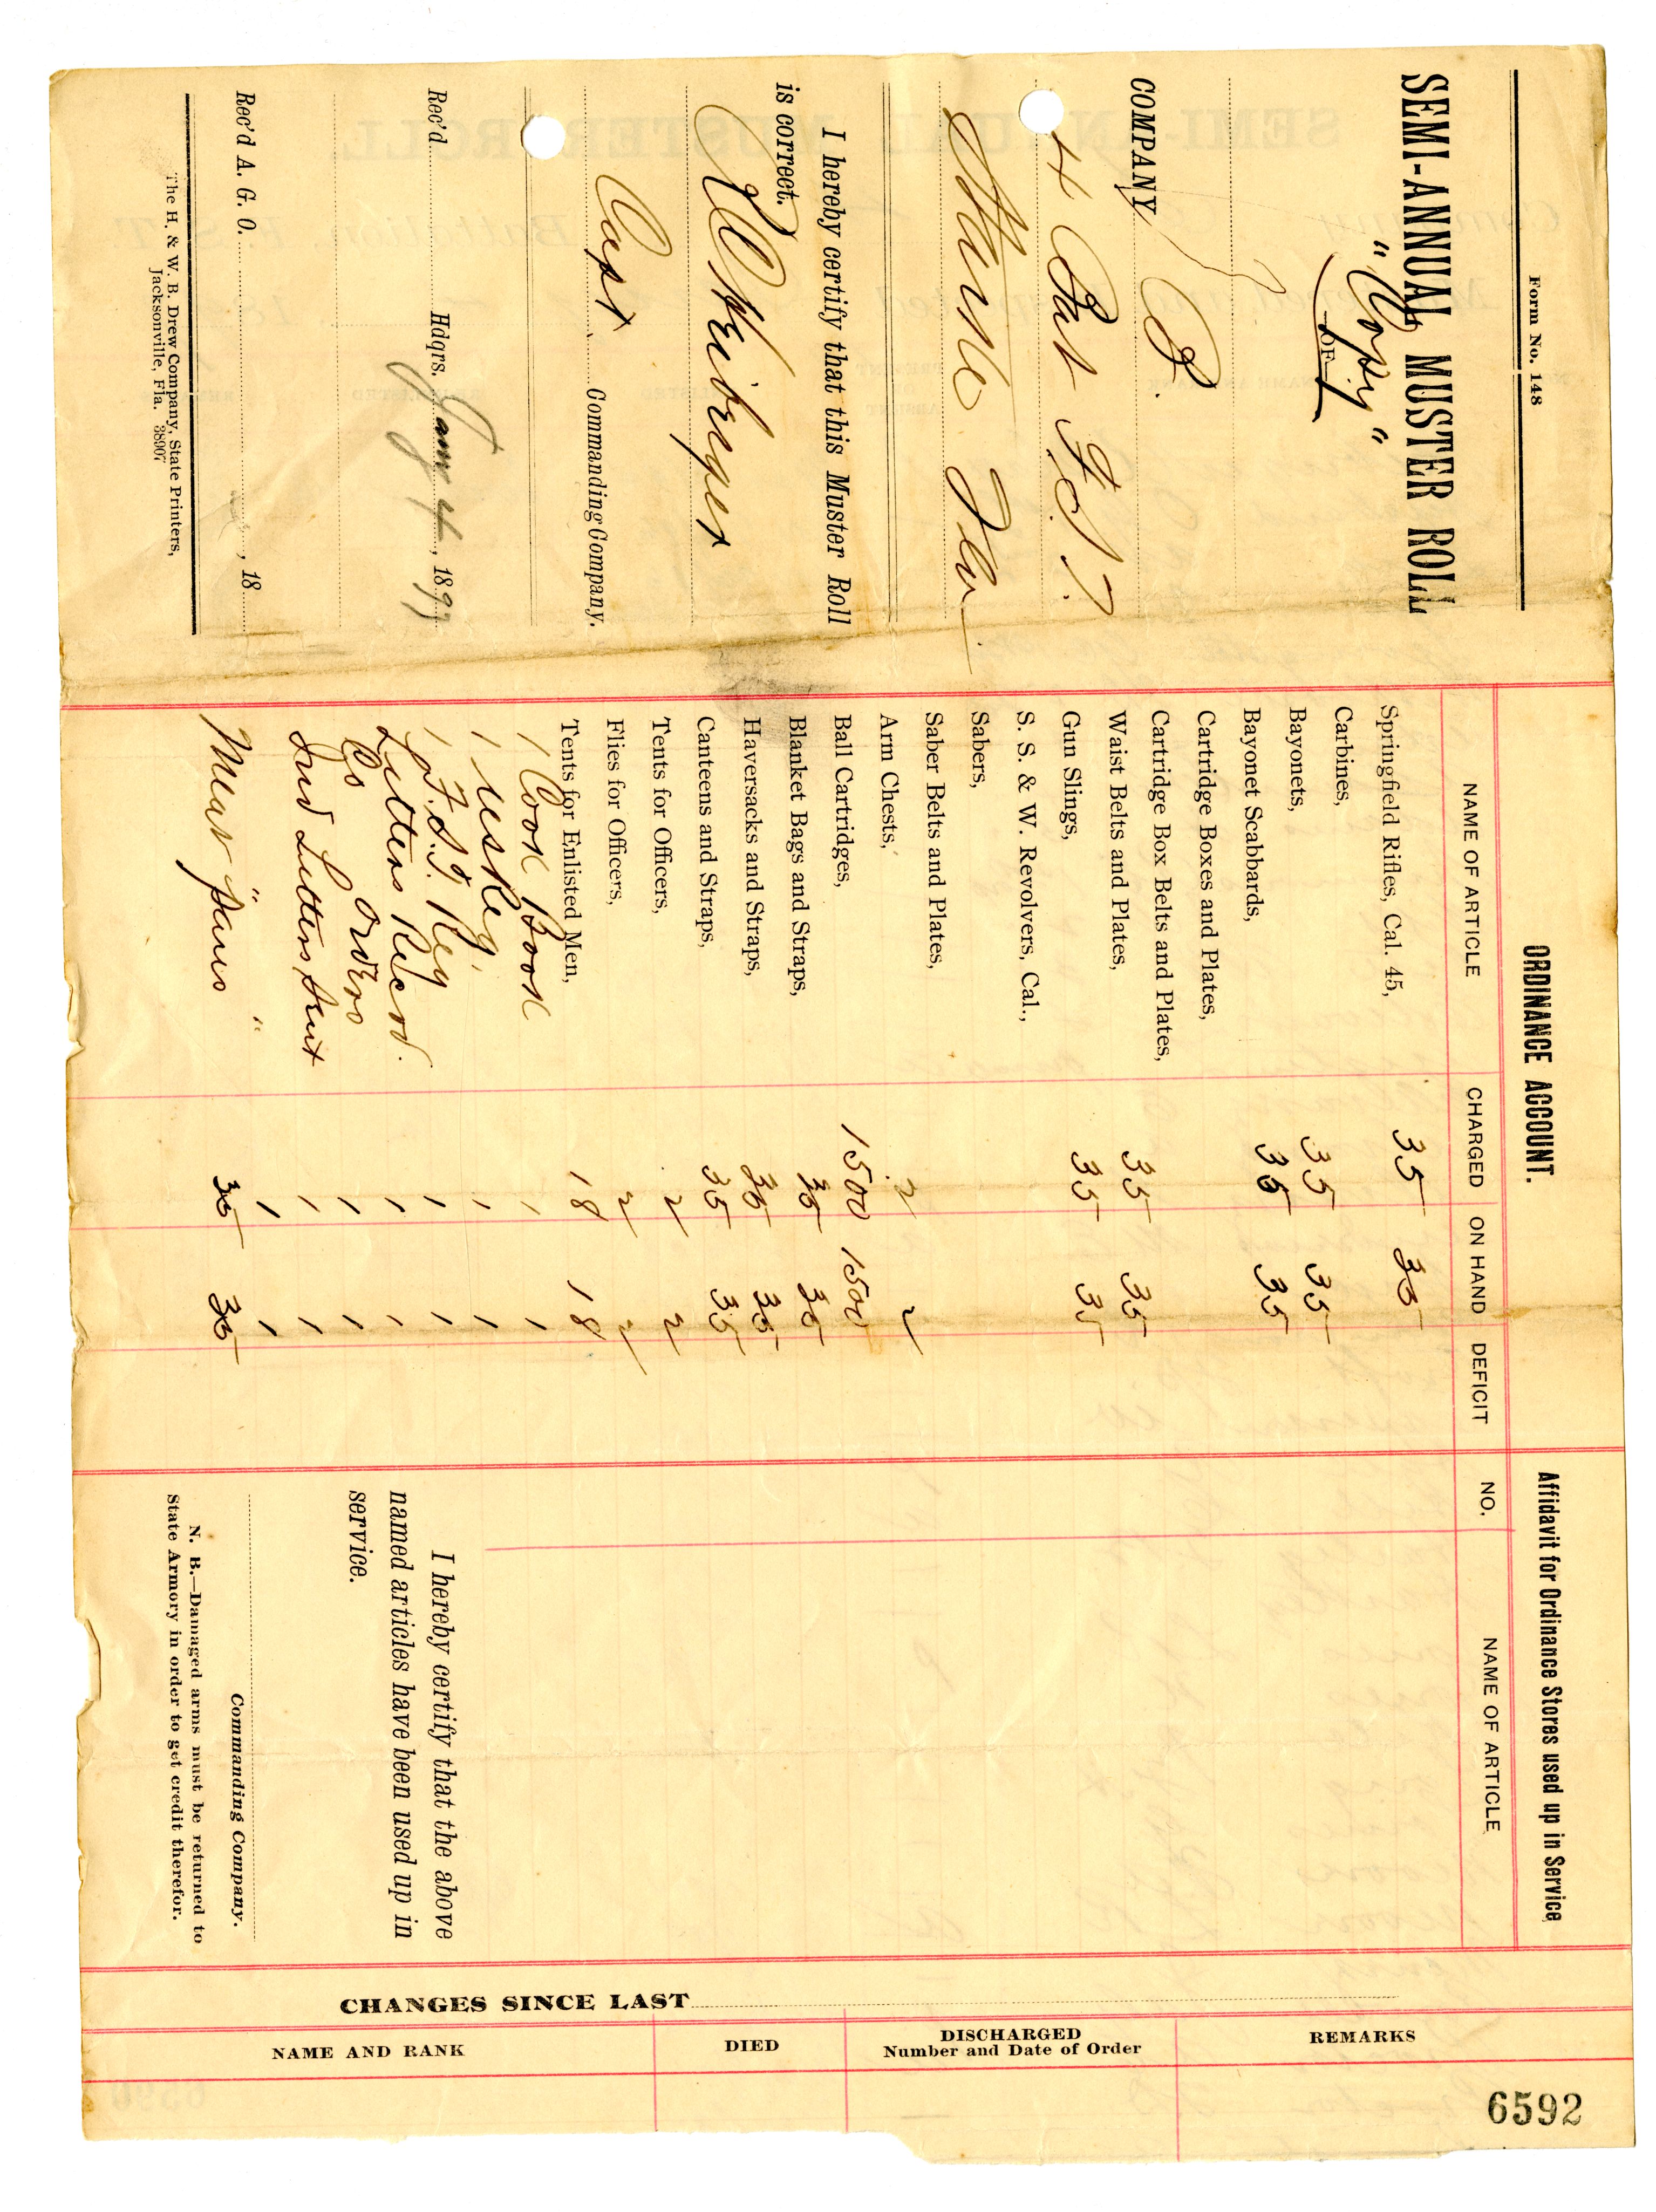 Form No. 148
SEMI-ANNUAL MUSTER ROLL
"Copy"
OF
COMPANY B.
4 Bat F.S.T.
Starke Fla.
I hereby certify that this Muster Roll
is correct.
Capt Commanding Company.
Rec'd Hdqrs. Jany 4, 1897
Rec'd A. G. O. , 18
The H. & W. B. Drew Company, State Printers,
Jacksonville, Fla. 38907
ORDINANCE ACCOUNT.
NAME OF ARTICLE CHARGED ON HAND DEFICIT
Springfield Rifles, Cal. 45, 35 35
Carbines,
Bayonets, 35 35
Bayonet Scabbards, 35 35
Cartridge Boxes and Plates,
Cartridge Box Belts and Plates,
Waist Belts and Plates, 35 35
Gun Slings, 35 35
S. S. & W. Revolvers, Cal.,
Sabers,
Saber Belts and Plates,
Arm Chests, 2 2
Ball Cartridges, 1500 1500
Blanket Bags and Straps, 35 35
Haversacks and Straps, 35 35
Canteens and Straps, 35 35
Tents for Officers, 2 2
Flies for Officers, 2 2
Tents for Enlisted Men, 18 18
1 Cook Book 1 1
1 1 1
1 F.S.T. Reg 1 1
Letters Recvd. 1 1
Co Orders 1 1
Ind Letters Sent 1 1
" " 1 1
Meat pans 35 35
Affidavit for Ordinance Stores used up in Service
NO. NAME OF ARTICLE
I hereby certify that the above
named articles have been used up in
service.
Commanding Company.
N. B.—Damaged arms must be returned to
State Armory in order to get credit therefor.
CHANGES SINCE LAST
NAME AND RANK DIED DISCHARGED REMARKS
Number and Date of Order
6592